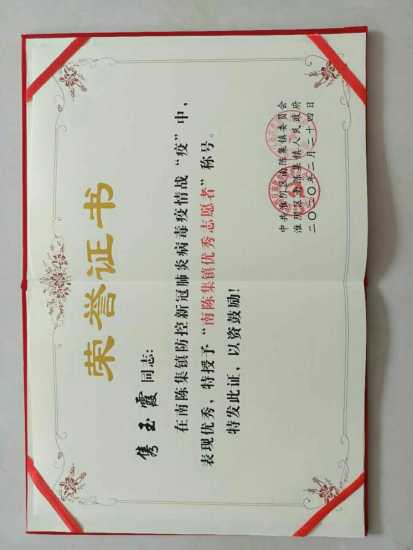 荣誉证书
隽玉霞 同志:
在南陈集镇防控新冠肺炎病毒疫情战“疫”中,
表现优秀、特授予“南陈集镇优秀志愿者”称号。
特发此证，以资鼓励!
中共淮阴区南陈集镇委员会
淮阴区南陈集镇人民政府
二〇二〇年二月二十四日